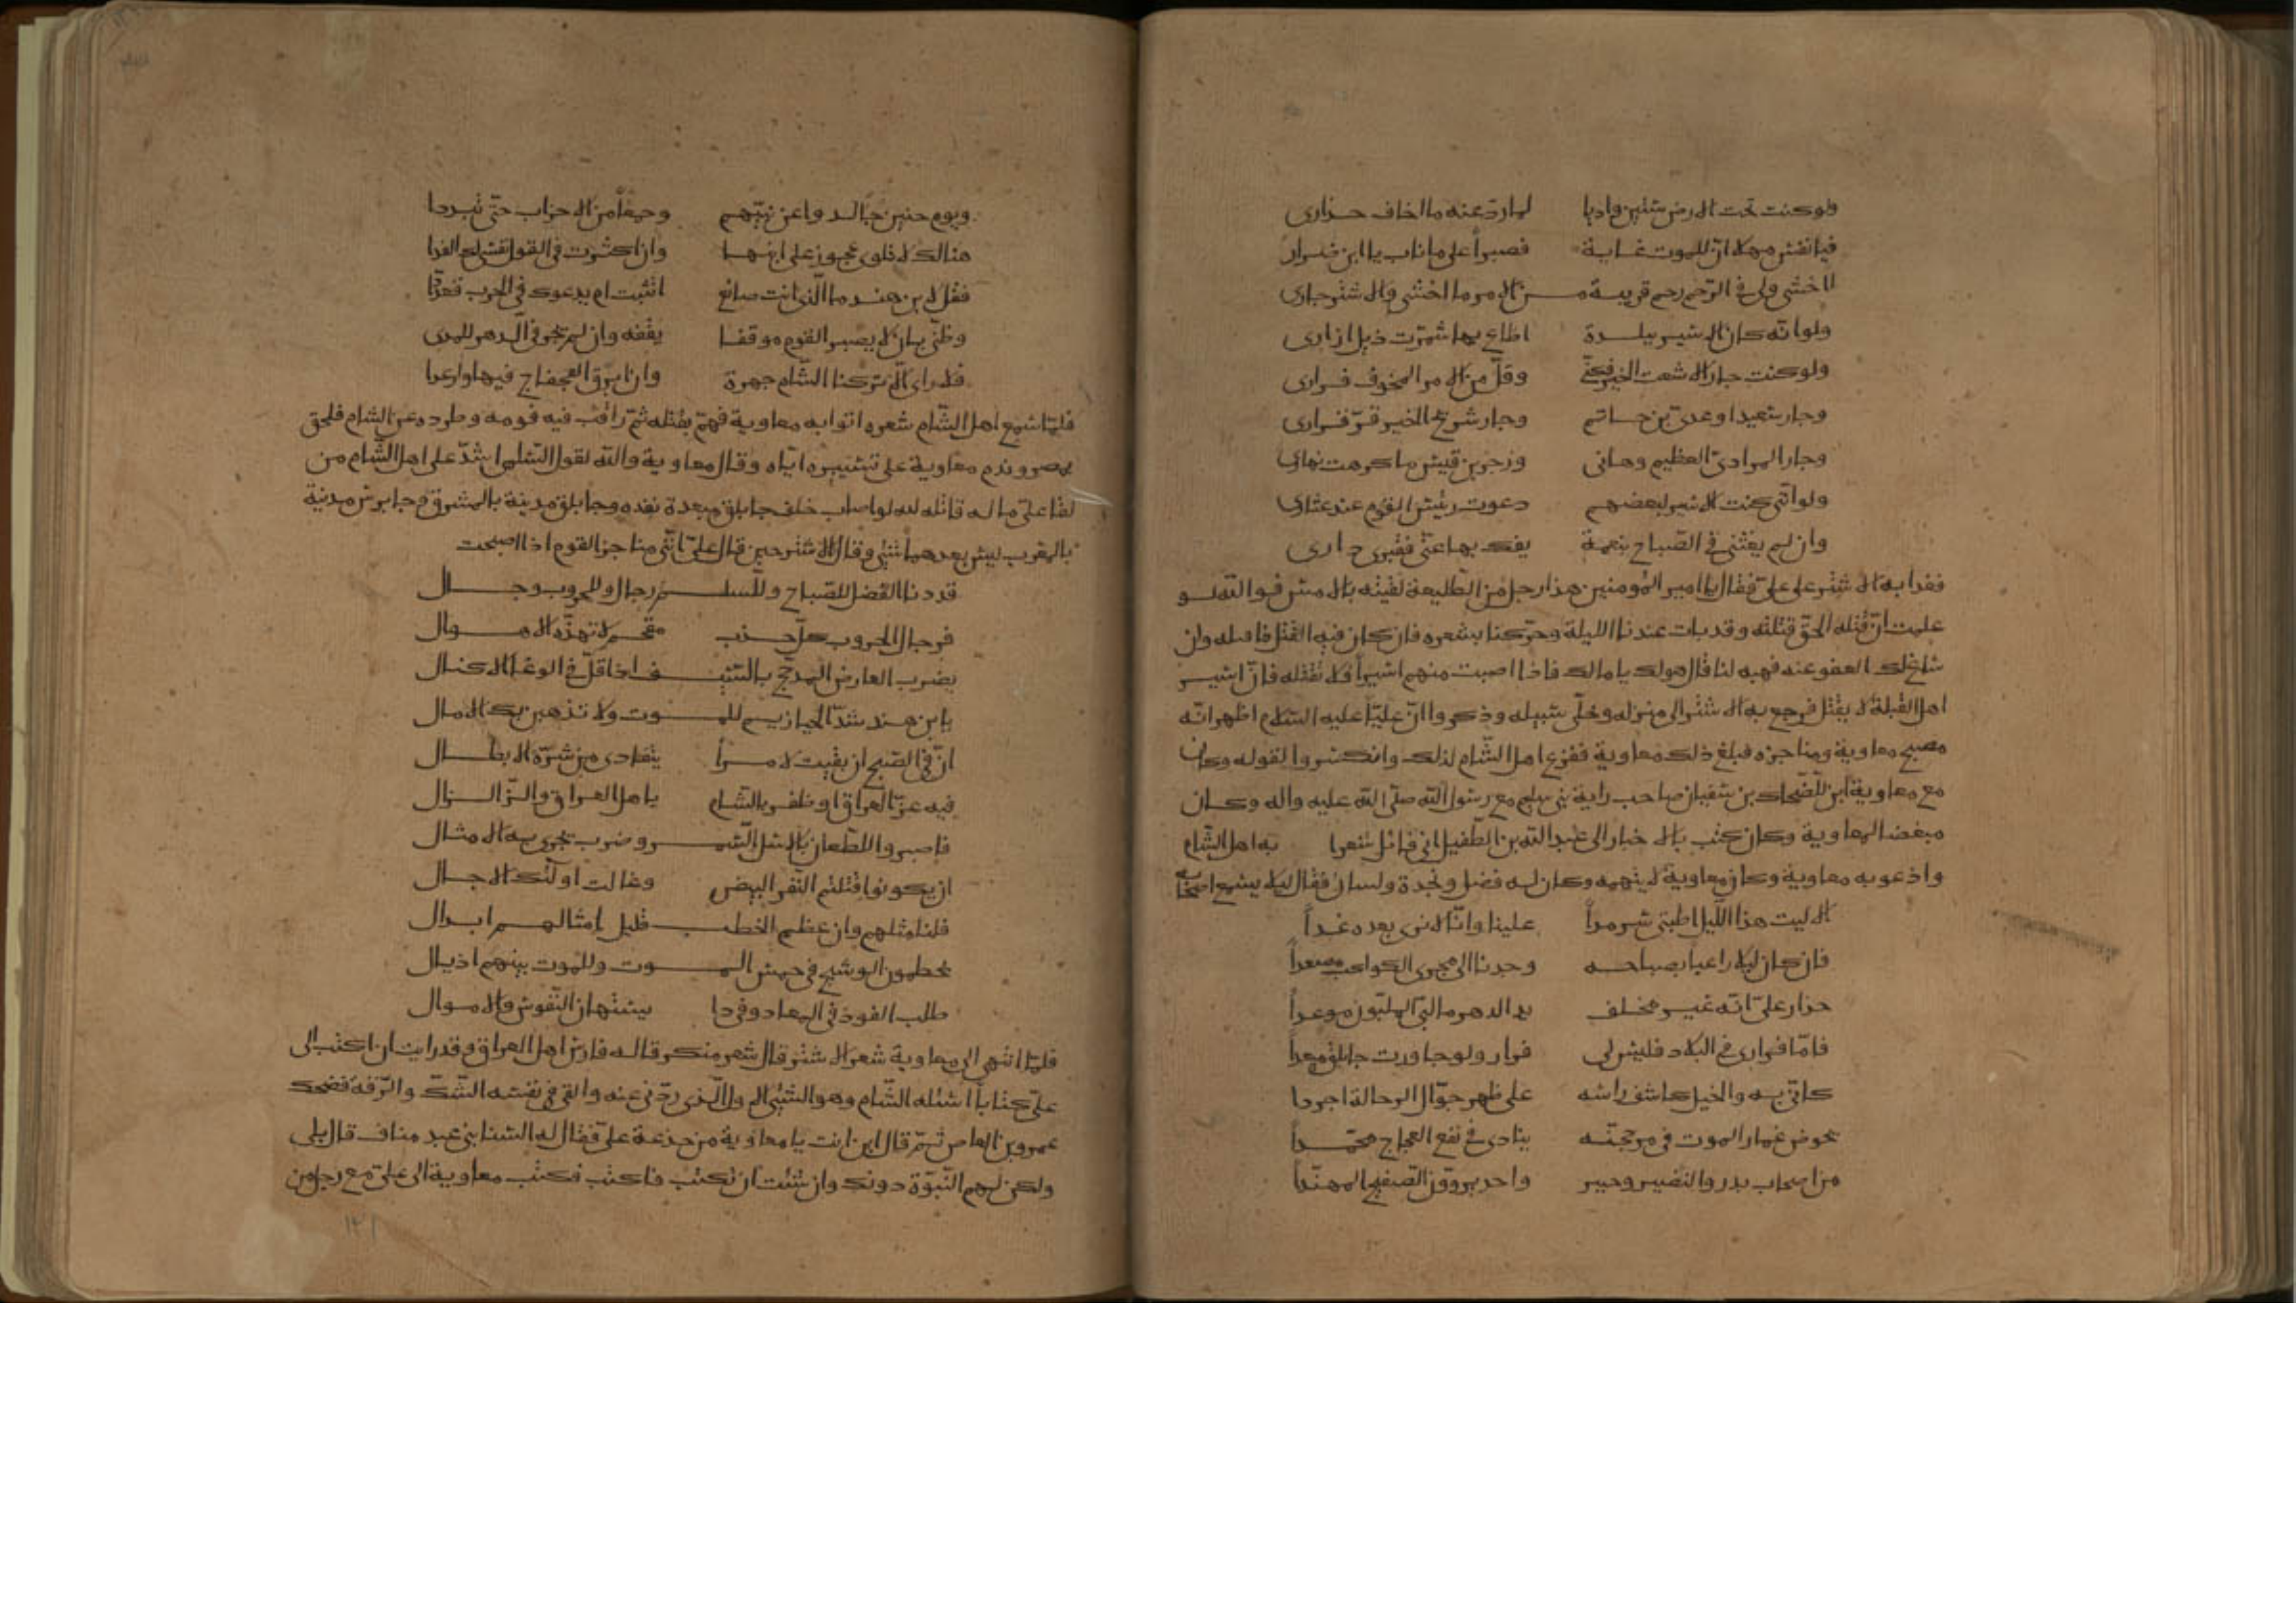 ولو كنت تحت الارض ستين واديا لما رد عنه ما اخاف حذاري
فيا نفس مهلا ان للموت غاية فصبرا على ما ناب يا ابن ضرار
ااخشى ولى في الرحم رحم قريبة من الامر ما اخشى والاشتر جاري
ولو انه كان الاسير ببلدة اطاع بها شمرت ذيل ازاري
ولو كنت جار الاشعث الخير فكني وقل من الامر المخوف فراري
وجار سعيد او عدي بن حاتم وجار شريح الخير قر قراري
وجار المرادي العظيم وهاني وزجر بن قيس ما كرهت نهاري
ولو انني كنت الاسير لبعضهم دعوت رئيس القوم عند عثاري
وان لم يغثني في الصباح بنعمة يفك بها عني
فغدا به الاشتر على علي فقال يا امير المومنين هذا رجل من الطليعة لقيته بالامس فوالله لو
علمت ان قتله الحق قتلته وقد بات عندنا الليلة وحركنا بشعره فان كان فيه القتل فاقتله وان
ساغ لك العفو عنه فهبه لنا قال هو لك يا مالك فاذا اصبت منهم اسيرا فلا تقتله فان اسير
اهل القبلة لا يقتل فرجع به الاشتر الى منزله وخلى سبيله وذكروا ان عليا عليه السلام اظهر انه
مصبح معاوية ومناجزه فبلغ ذلك معاوية ففزع اهل الشام لذلك وانكسروا لقوله وكان
مع معاوية ابن للضحاك بن سفيان صاحب راية بني سليم مع رسول الله صلى الله عليه واله وكان
مبغضا لمعاوية وكان يكتب بالاخبار الى عبد الله بن الطفيل اني قائل شعرا به اهل الشام
واذعر به معاوية وكان معاوية لا يتهمه وكان له فضل ونجدة ولسان فقال ليلا يسمع اصحابه
الا ليت هذا الليل اطبق سرمدا علينا وانا لا نرى بعده غدا
فان كان ليلا راعبا بصباحه وجدنا الى مجرى الكواكب مصعدا
حذار علي انه غير مخلف يد الدهر ما لبى الملبون موعدا
فاما فراري في البلاد فليس لي فرار ولو جاوزت جابلق مبعدا
كاني به والخيل كاشف راسه على ظهر جوال الرحالة اجردا
يخوض غمار الموت في مرجحنه ينادي في نقع العجاج محمدا
من اصحاب بدر والنضير وخيبر واحد يروون الصفيح المهندا
ويوم حنين جالدوا عن نبيهم وجمعا من الاحزاب حتى تبددا
هنالك لا تلوى عجوز على ابنها وان اكثرت في القول نفسى لك الفدا
فقل لابن هند ما الذي انت صانع اتثبت ام يدعوك في الحرب قعددا
وظني بان لا يصبر القوم موقفا يقفه وان لم يجر في الدهر للمدى
فلا راي الا تركنا الشام جهرة وان ابرق الفجفاج فيها وارعدا
فلما سمع اهل الشام شعره اتوا به معاوية فهم بقتله ثم راقب فيه قومه وطرده عن الشام فلحق
بمصر وندم معاوية على تسييره اياه وقال معاوية والله لقول السلمى اشد على اهل الشام من
لقا علي ما له قاتله الله لو اصاب خلف جابلق مبعدة نفده وجابلق مدينة بالمشرق وجابرس مدينة
بالمغرب ليس بعدهما شئ وقال الاشتر حين قال علي انني مناجز القوم اذا اصبحت
قد دنا الفضل للصباح وللسلم رجال وللحروب رجال
فرجال الحروب كل خدب مقحم لا تهده الاهوال
يضرب العارض المدجج بالسيف اذا فل في الوغا الاكفال
يا بن هند شد الحيازيم للموت ولا تذهبن بك الامال
ان في الصبح ان بقيت لامرا يتفادى من شره الابطال
فيه عز العراق او ظفر بالشام يا هل العراق والزلزال
فاصبروا للطعان بالاسل السمر وضرب تجري به الامثال
ان يكونوا قتلتم النفر البيض وغالت اولئك الاجال
فلنا مثلهم وان عظم الخطب قليل امثالهم ابدال
يخطمون الوشيج في حمس الموت وللموت بينهم اذيال
طلب الفوز في المعاد وفي ذا يستهان النفوس والاموال
فلما انتهى الى معاوية شعر الاشتر قال شعر منكر قاله فارس اهل العراق وقد رايت ان اكتب الى
علي كتابا اسئله الشام وهو الشئ الاول الذي ردني عنه والقي في نفسه الشك والرقة فضحك
عمرو بن العاص ثم قال اين انت يا معاوية من خدعة علي فقال له السنا بني عبد مناف قال بلى
ولكن لهم النبوة دونك وان شئت ان تكتب فاكتب فكتب معاوية الى علي مع رجل من
١٣١